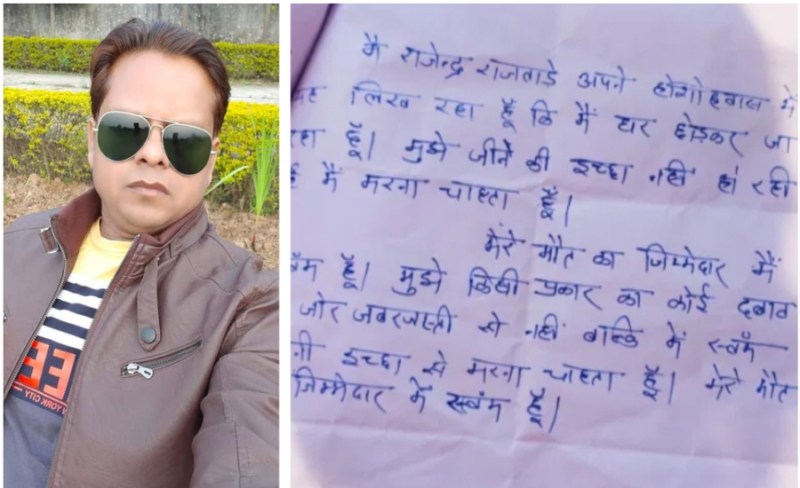 YORK CITY
मै राजेन्द्र रजवाडे अपने होशोहवास में
यह लिख रहा हूँ कि मैं घर छोड़कर जा
रहा हूँ। मुझे जीने की इच्छा नहीं हो रही
है मैं मरना चाहता हूँ।
मेरे मौत का जिम्मेदार मैं
हूँ। मुझे किसी प्रकार का कोई दबाव
जोर जबरजस्ती से नहीं बल्कि में स्वंम
इच्छा से मरना चाहता हूँ। मेरे मौत
जिम्मेदार मैं स्वंम हूँ।